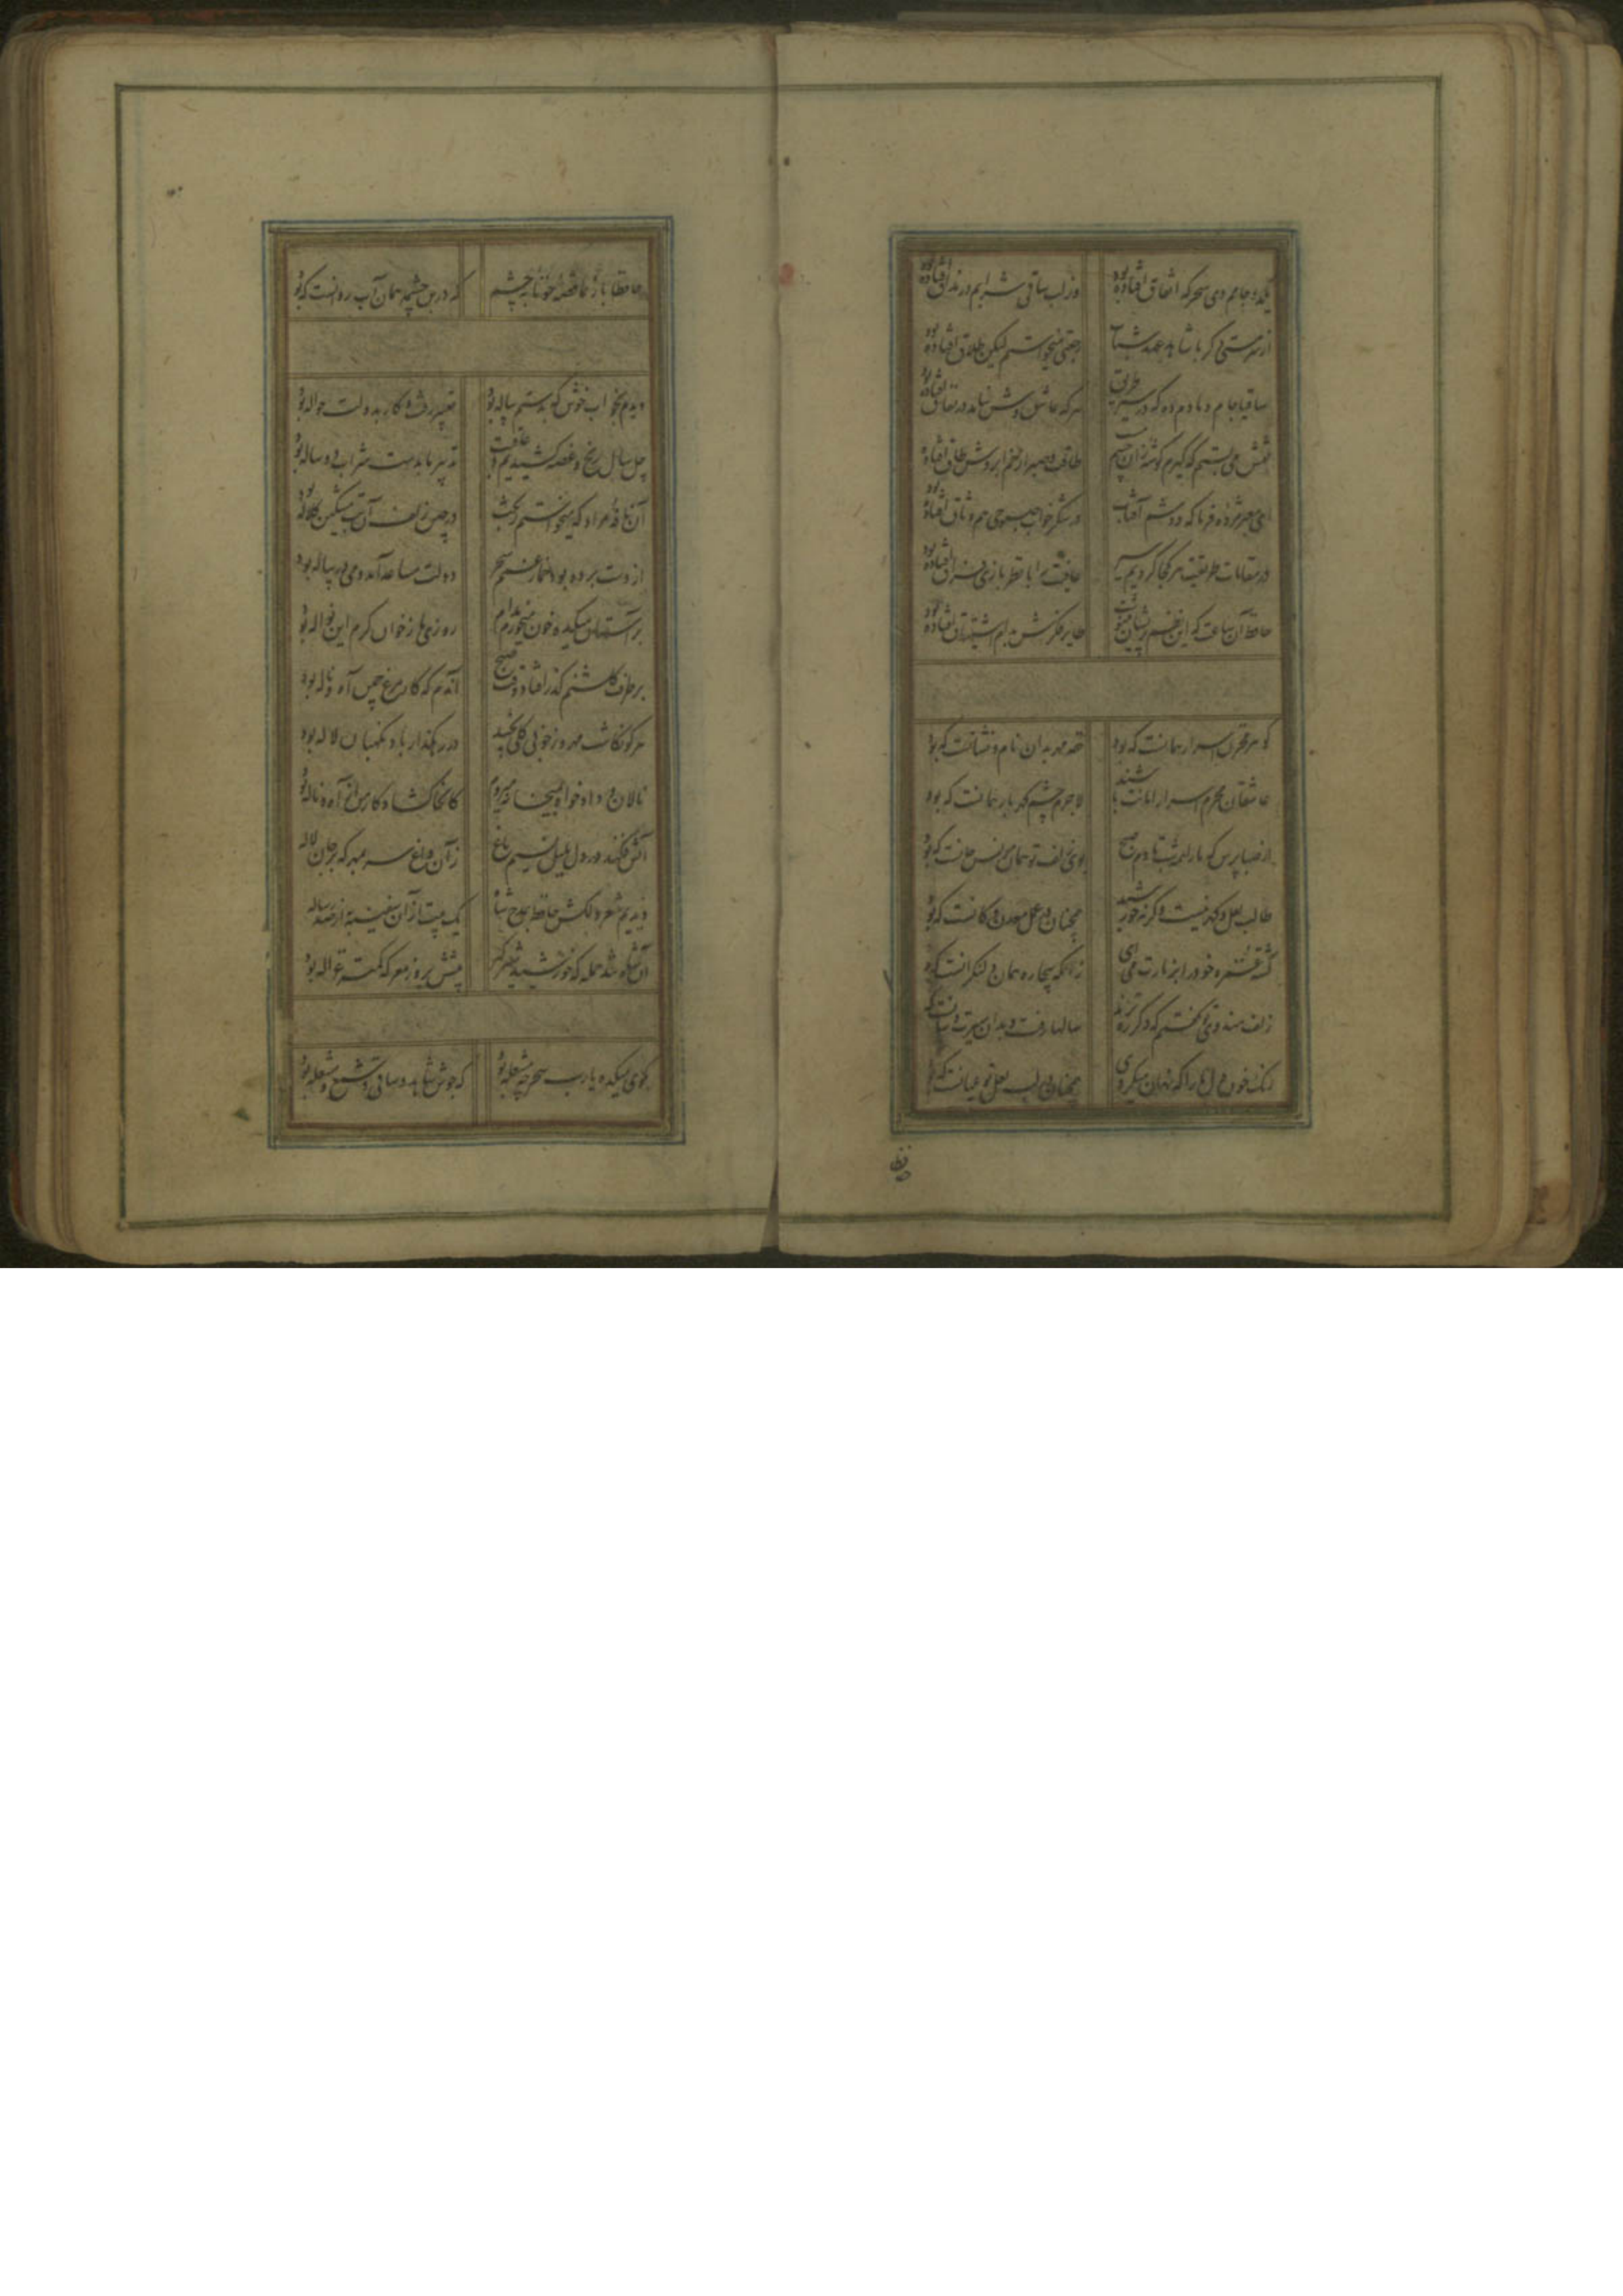 یکدو جامم دی سحرکه اتفاق افتاده بود
وز لب ساقی شرابم در مذاق افتاده بود
از سر مستی دکر با شاهد عهد شباب
رجعتی میخواستم لیکن طلاق افتاده بود
ساقیا جام دمادم ده که در سیر طریق
هر که عاشق وش نیامد در نفاق افتاده بود
نقش می بستم که کیرم کوشه زان چشم
طاقت و صبر از خم ابروش طاق افتاده
ای معبر مژده فرما که دوشم آفتاب
در شکر خواب صبوحی هم وثاق افتاده بود
در مقامات طریقت هر کجا کردیم سیر
عافیت را با نظربازی فراق افتاده بود
حافظ آن ساعت که این نظم پریشان مینوشت
طایر فکرش بدام اشتیاق افتاده بود
کوهر مخزن اسرار همانست که بود
حقه مهر بدان نام و نشانست که بود
عاشقان محرم اسرار امانت باشند
لاجرم چشم کهربار همانست که بود
از صبا پرس که ما را همه شب تا دم صبح
بوی زلف تو همان مونس جانست که بود
طالب لعل و کهر نیست وکرنه خورشید
همچنان در عمل معدن و کانست که بود
کشته غمزه خود را بزیارت می آی
زانکه بیچاره همان دل نکرانست که بود
زلف هندوی تو کفتم که دکر ره نزند
سالها رفت و بدان سیرت و سانست که
رنک خون دل ما را که نهان میکردی
همچنان در لب لعل تو عیانست که بود
حافظا باز نما قصه خونابه چشم
که درین چشمه همان آب روانست که بود
دیدم بخواب خوش که بدستم پیاله بود
تعبیر رفت و کار بدولت حواله بود
چل سال رنج و غصه کشیدیم و عاقبت
تدبیر ما بدست شراب دو ساله بود
آن نافه مراد که میخواستم ز بخت
در چین زلف آن بت مشکین کلاله بود
از دست برده بود خمار غمم سحر
دولت مساعد آمد و می در پیاله بود
بر آستان میکده خون میخورم مدام
روزی ما ز خوان کرم این نواله بود
بر طرف کلشنم کذر افتاد وقت صبح
آندم که کار مرغ چمن آه و ناله بود
هر کو نکاشت مهر و ز خوبی کلی نچید
در رهکذار باد نکهبان لاله بود
نالان و دادخواه بمیخانه میروم
کانجا کشاد کار من از آه و ناله بود
آتش فکند در دل بلبل نسیم باغ
زآن داغ سر بمهر که بر جان لاله
دیدیم شعر دلکش حافظ بمدح شاه
یک بیت ازآن سفینه به از صد رساله
آن شاه تند حمله که خورشید شیرکیر
پیشش بروز معرکه کمتر غزاله بود
بکوی میکده یارب سحر چه مشغله بود
که جوش شاهد و ساقی و شمع و مشعله بود
حافظا